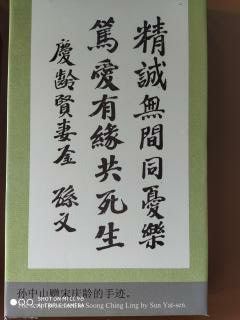 精誠無間同憂樂
篤愛有緣共死生
慶齡賢妻鉴 孫文
孙中山赠宋庆龄的手迹。
Soong Ching Ling by Sun Yat-sen.
SHOT ON MI
CAMERA